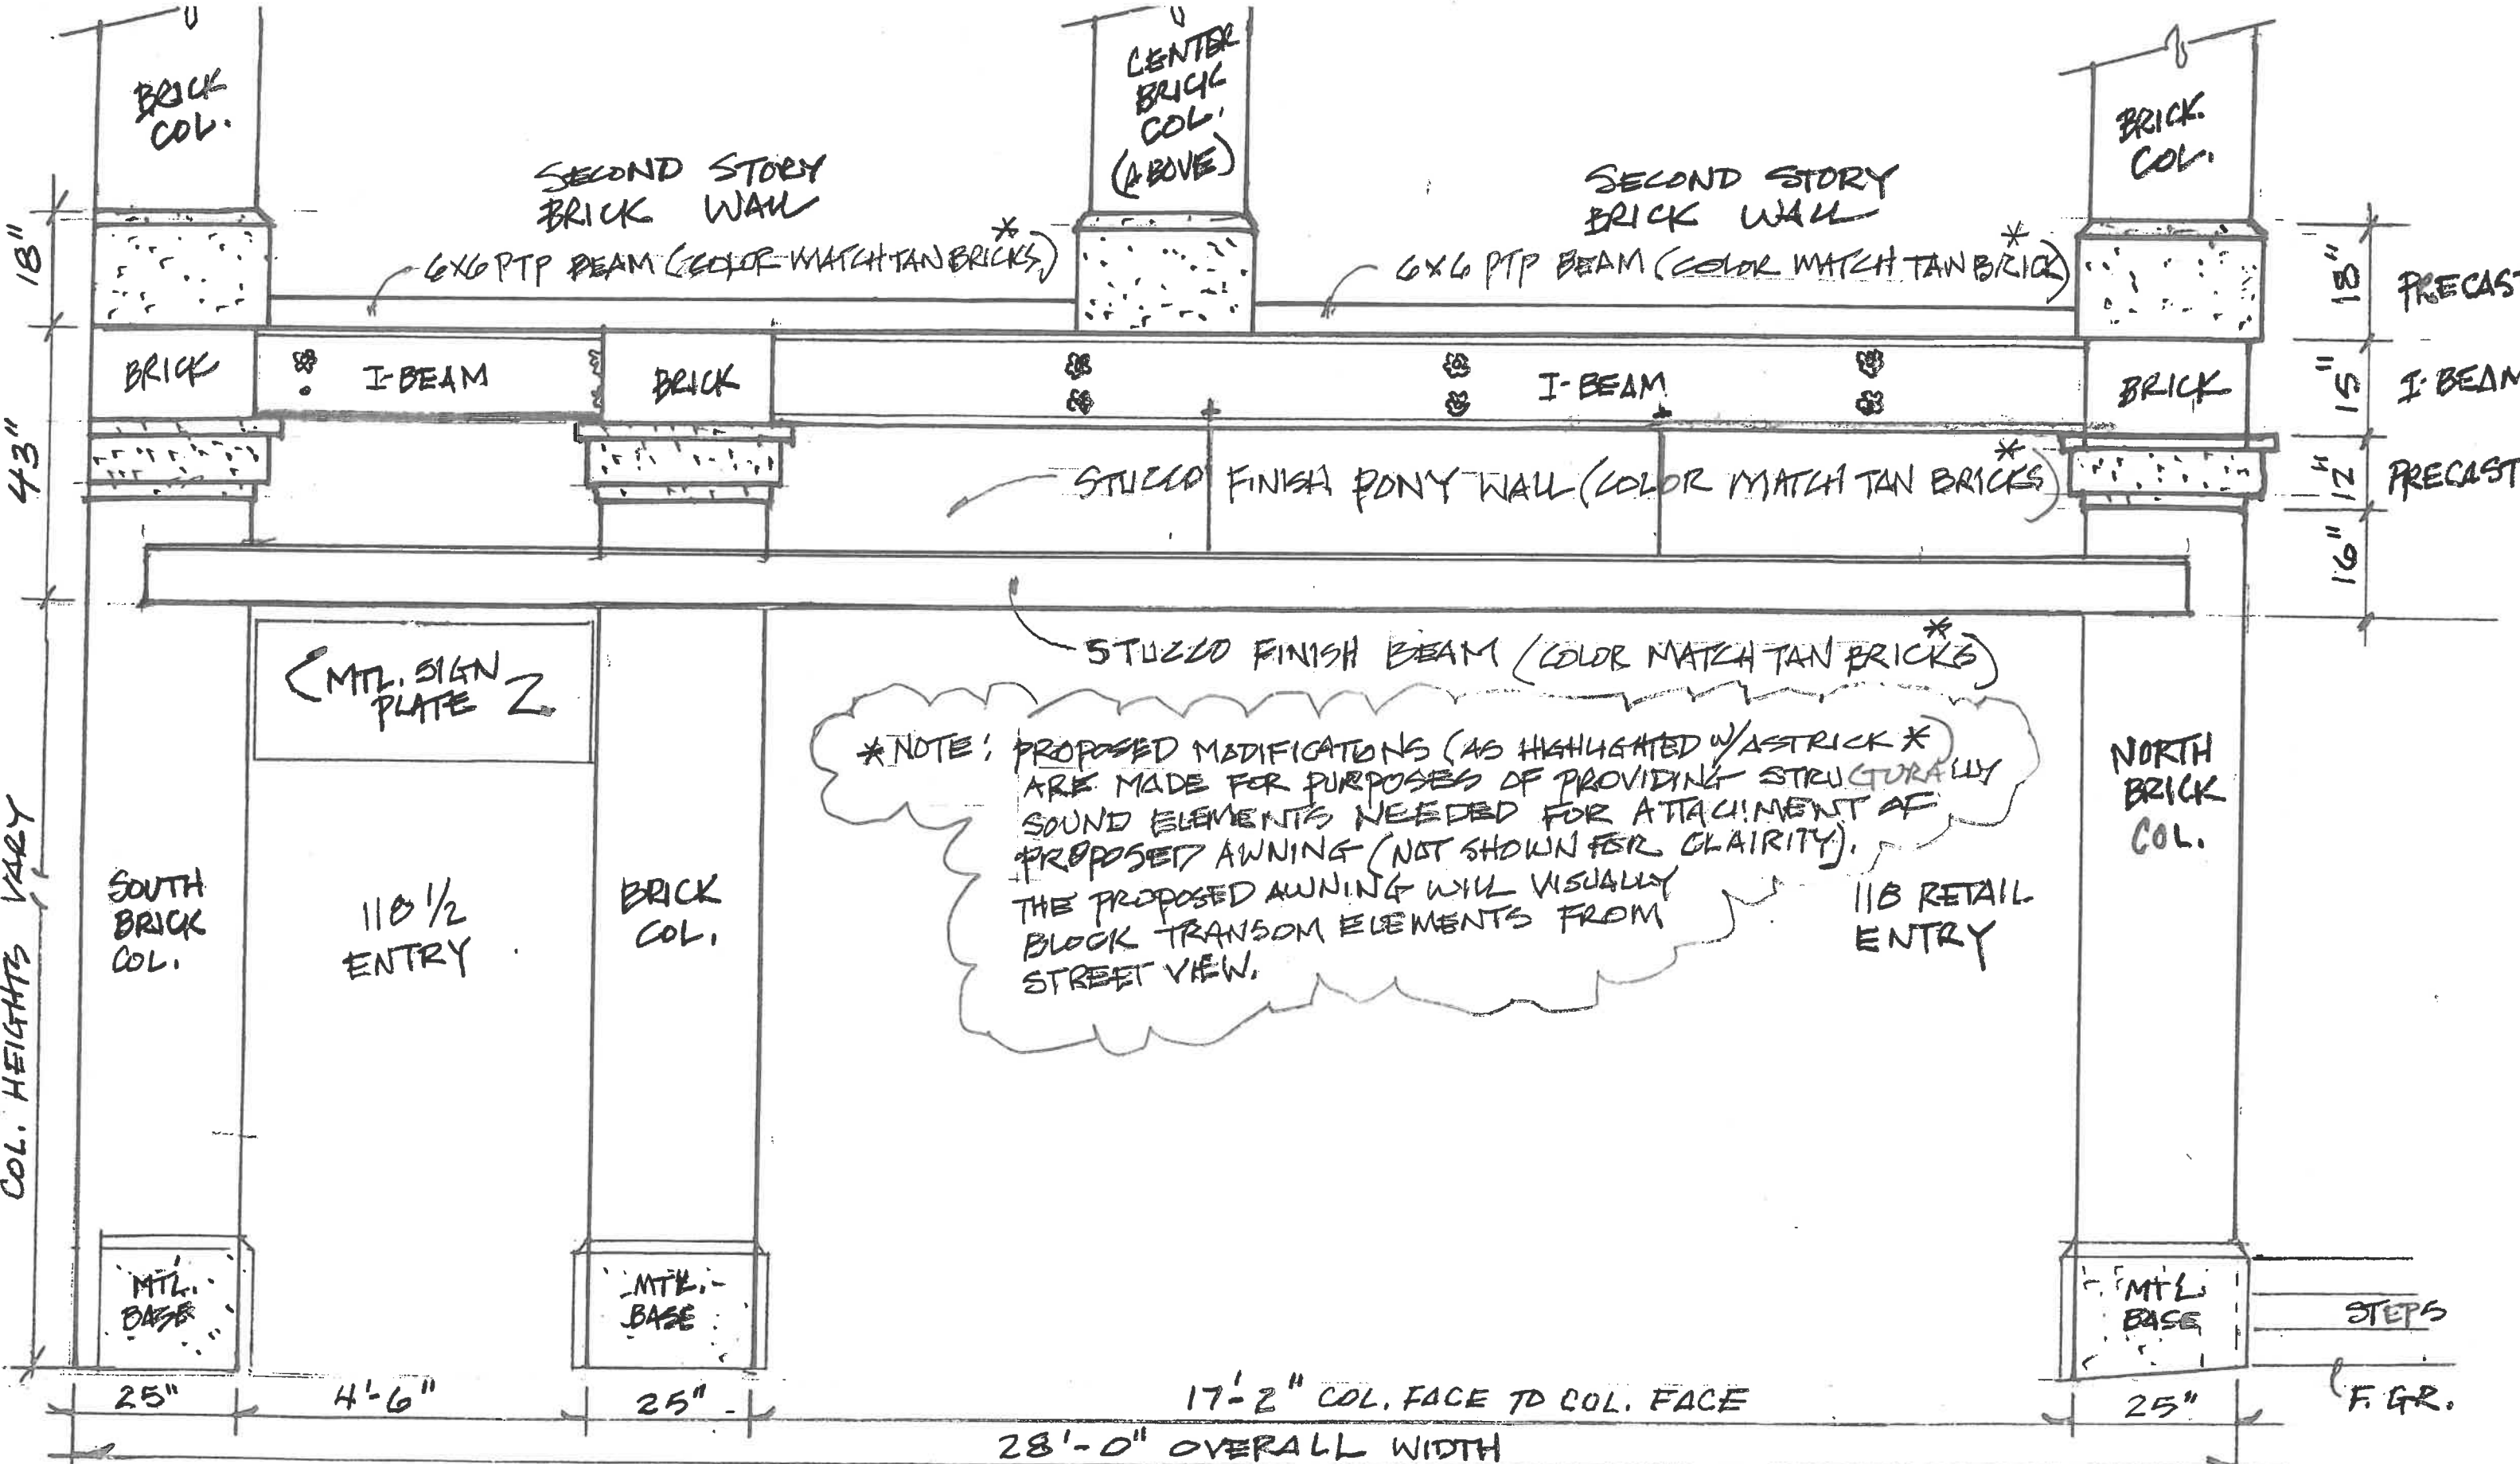 BRICK
COL.
CENTER
BRICK
COL.
(ABOVE)
BRICK
COL.
SECOND STORY
BRICK WALL
6X6 PTP BEAM (COLOR MATCH TAN BRICKS)*
SECOND STORY
BRICK WALL
6X6 PTP BEAM (COLOR MATCH TAN BRICK)*
18"
18"
PRECAST
BRICK
I-BEAM
BRICK
I-BEAM
BRICK
15"
I-BEAM
43"
STUCCO FINISH PONY WALL (COLOR MATCH TAN BRICKS)*
12"
PRECAST
16"
STUCCO FINISH BEAM (COLOR MATCH TAN BRICKS)*
MTL. SIGN
PLATE
*NOTE: PROPOSED MODIFICATIONS (AS HIGHLIGHTED W/ASTRICK *)
ARE MADE FOR PURPOSES OF PROVIDING STRUCTURALLY
SOUND ELEMENTS NEEDED FOR ATTACHMENT OF
PROPOSED AWNING (NOT SHOWN FOR CLAIRITY).
THE PROPOSED AWNING WILL VISUALLY
BLOCK TRANSOM ELEMENTS FROM
STREET VIEW.
NORTH
BRICK
COL.
COL. HEIGHTS VARY
SOUTH
BRICK
COL.
118 1/2
ENTRY
BRICK
COL.
118 RETAIL
ENTRY
MTL.
BASE
MTL.
BASE
MTL.
BASE
STEPS
F. GR.
25"
4'-6"
25"
17'-2" COL. FACE TO COL. FACE
25"
28'-0" OVERALL WIDTH